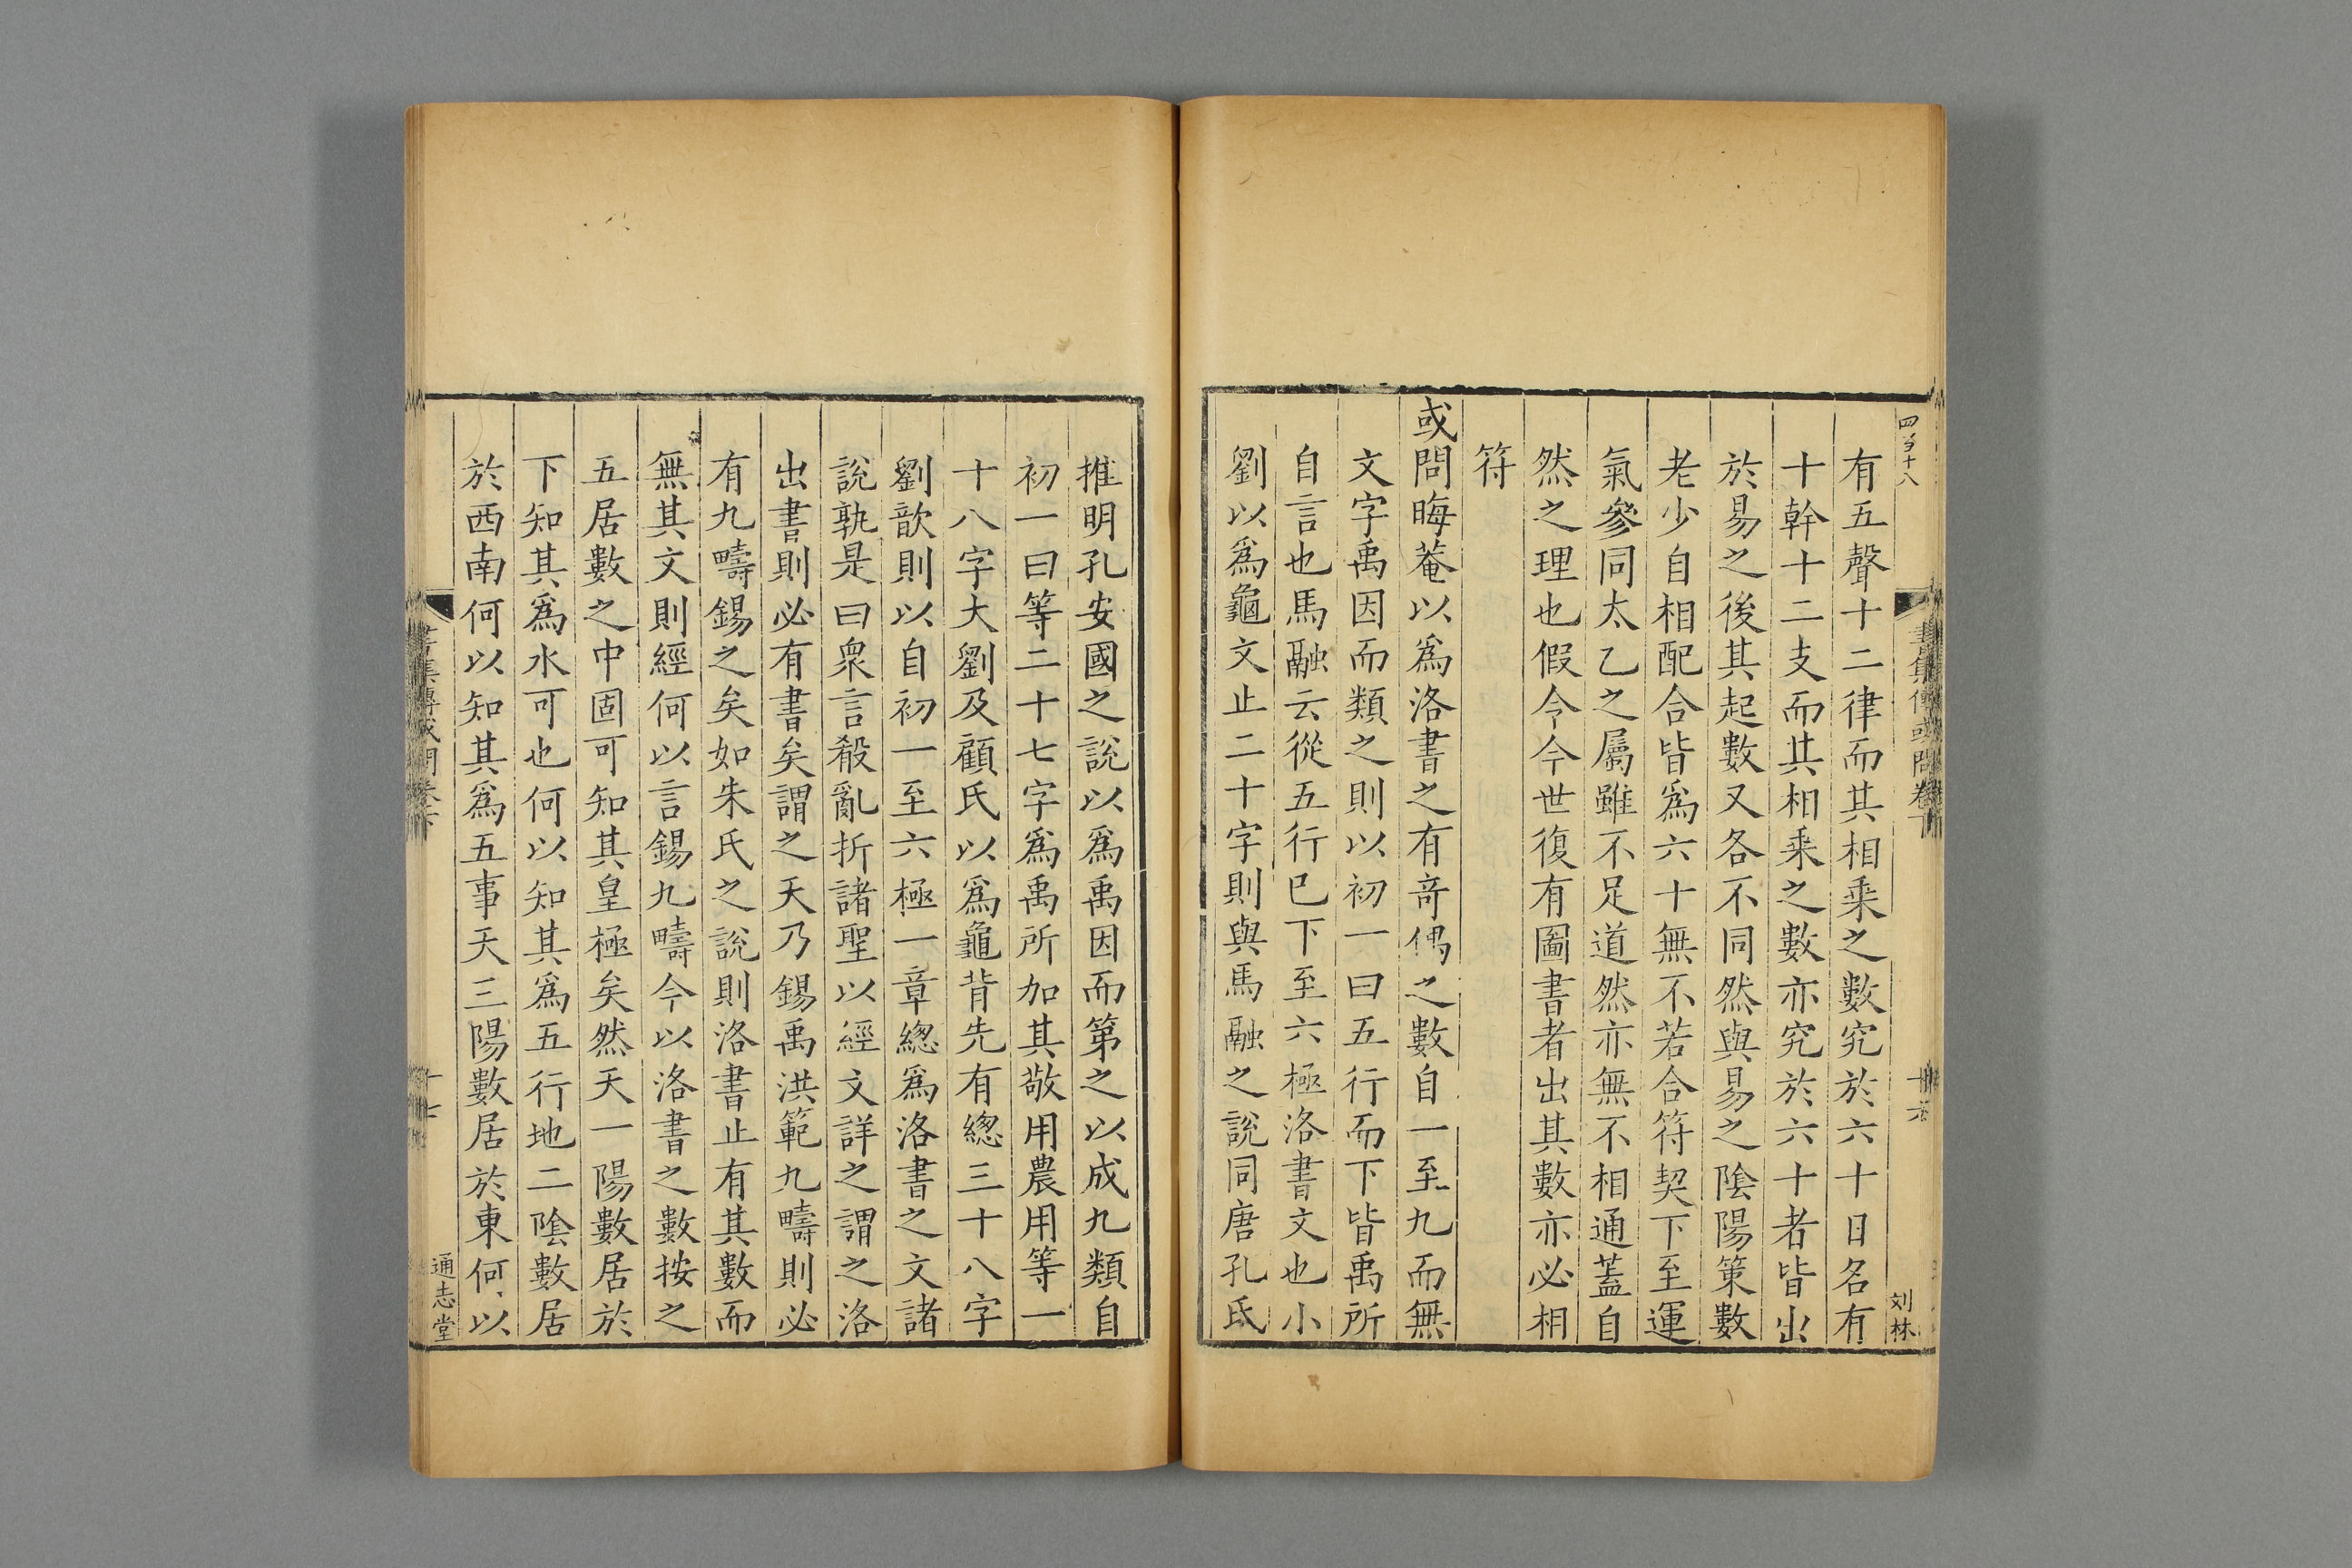 有五聲十二律而其相乘之數究於六十日名有
十幹十二支而其相乘之數亦究於六十者皆出
於易之後其起數又各不同然與易之陰陽策數
老少自相配合皆爲六十無不若合符契下至運
氣參同太乙之屬雖不足道然亦無不相通蓋自
然之理也假令今世復有圖書者出其數亦必相
符
或問晦菴以爲洛書之有竒偶之數自一至九而無
文字禹因而類之則以初一曰五行而下皆禹所
自言也馬融云從五行已下至六極洛書文也小
劉以爲龜文止二十字則與馬融之說同唐孔氏
刘林
推明孔安國之說以爲禹因而第之以成九類自
初一曰等二十七字爲禹所加其敬用農用等一
十八字大劉及顧氏以爲龜背先有緫三十八字
劉歆則以自初一至六極一章緫爲洛書之文諸
說孰是曰衆言殽亂折諸聖以經文詳之謂之洛
出書則必有書矣謂之天乃錫禹洪範九疇則必
有九疇錫之矣如朱氏之說則洛書止有其數而
無其文則經何以言錫九疇今以洛書之數按之
五居數之中固可知其皇極矣然天一陽數居於
下知其爲水可也何以知其爲五行地二陰數居
於西南何以知其爲五事天三陽數居於東何以
通志堂